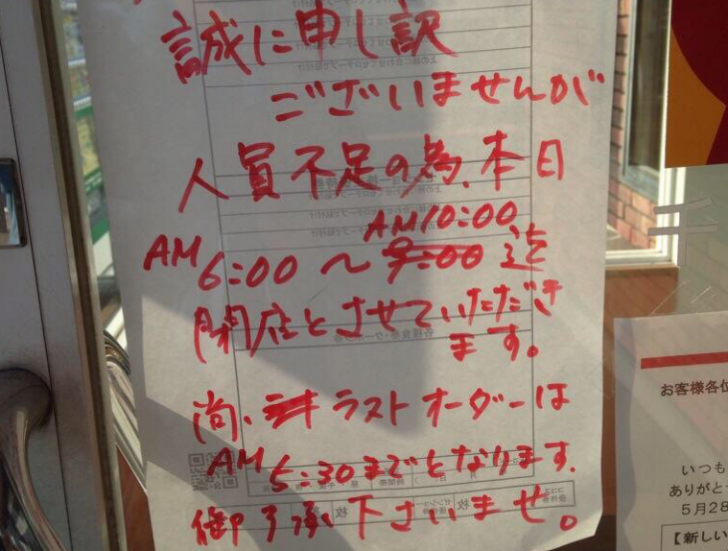 誠に申し訳
ございませんが
人員不足の為、本日
AM10:00
AM6:00〜9:00迄
閉店とさせていただき
ます。
尚、ラストオーダーは
AM5:30までとなります。
御了承下さいませ。
お客様各位
いつも
ありがと
5月28
【新しい